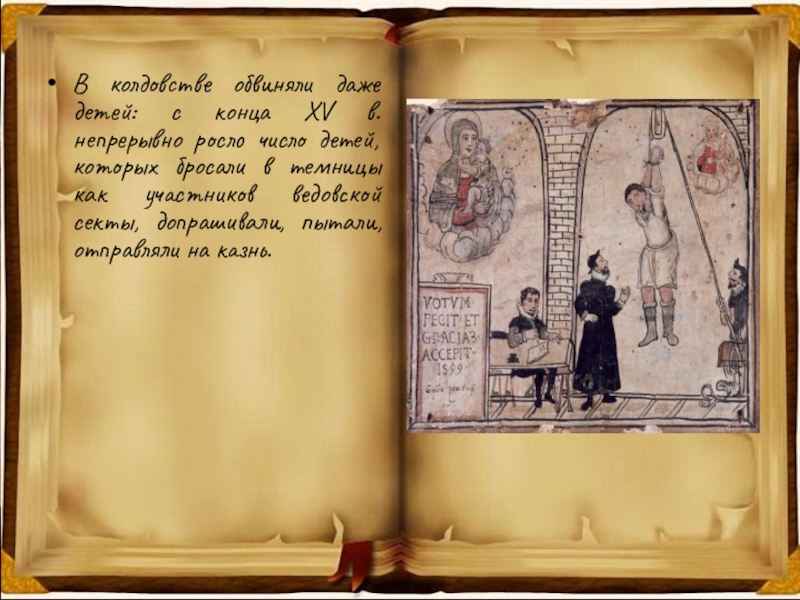 • В колдовстве обвиняли даже
детей: с конца XV в.
непрерывно росло число детей,
которых бросали в темницы
как участников ведовской
секты, допрашивали, пытали,
отправляли на казнь.
VOTVM·
FECIT·ET
GRACIA3·
ACCEPIT·
1599